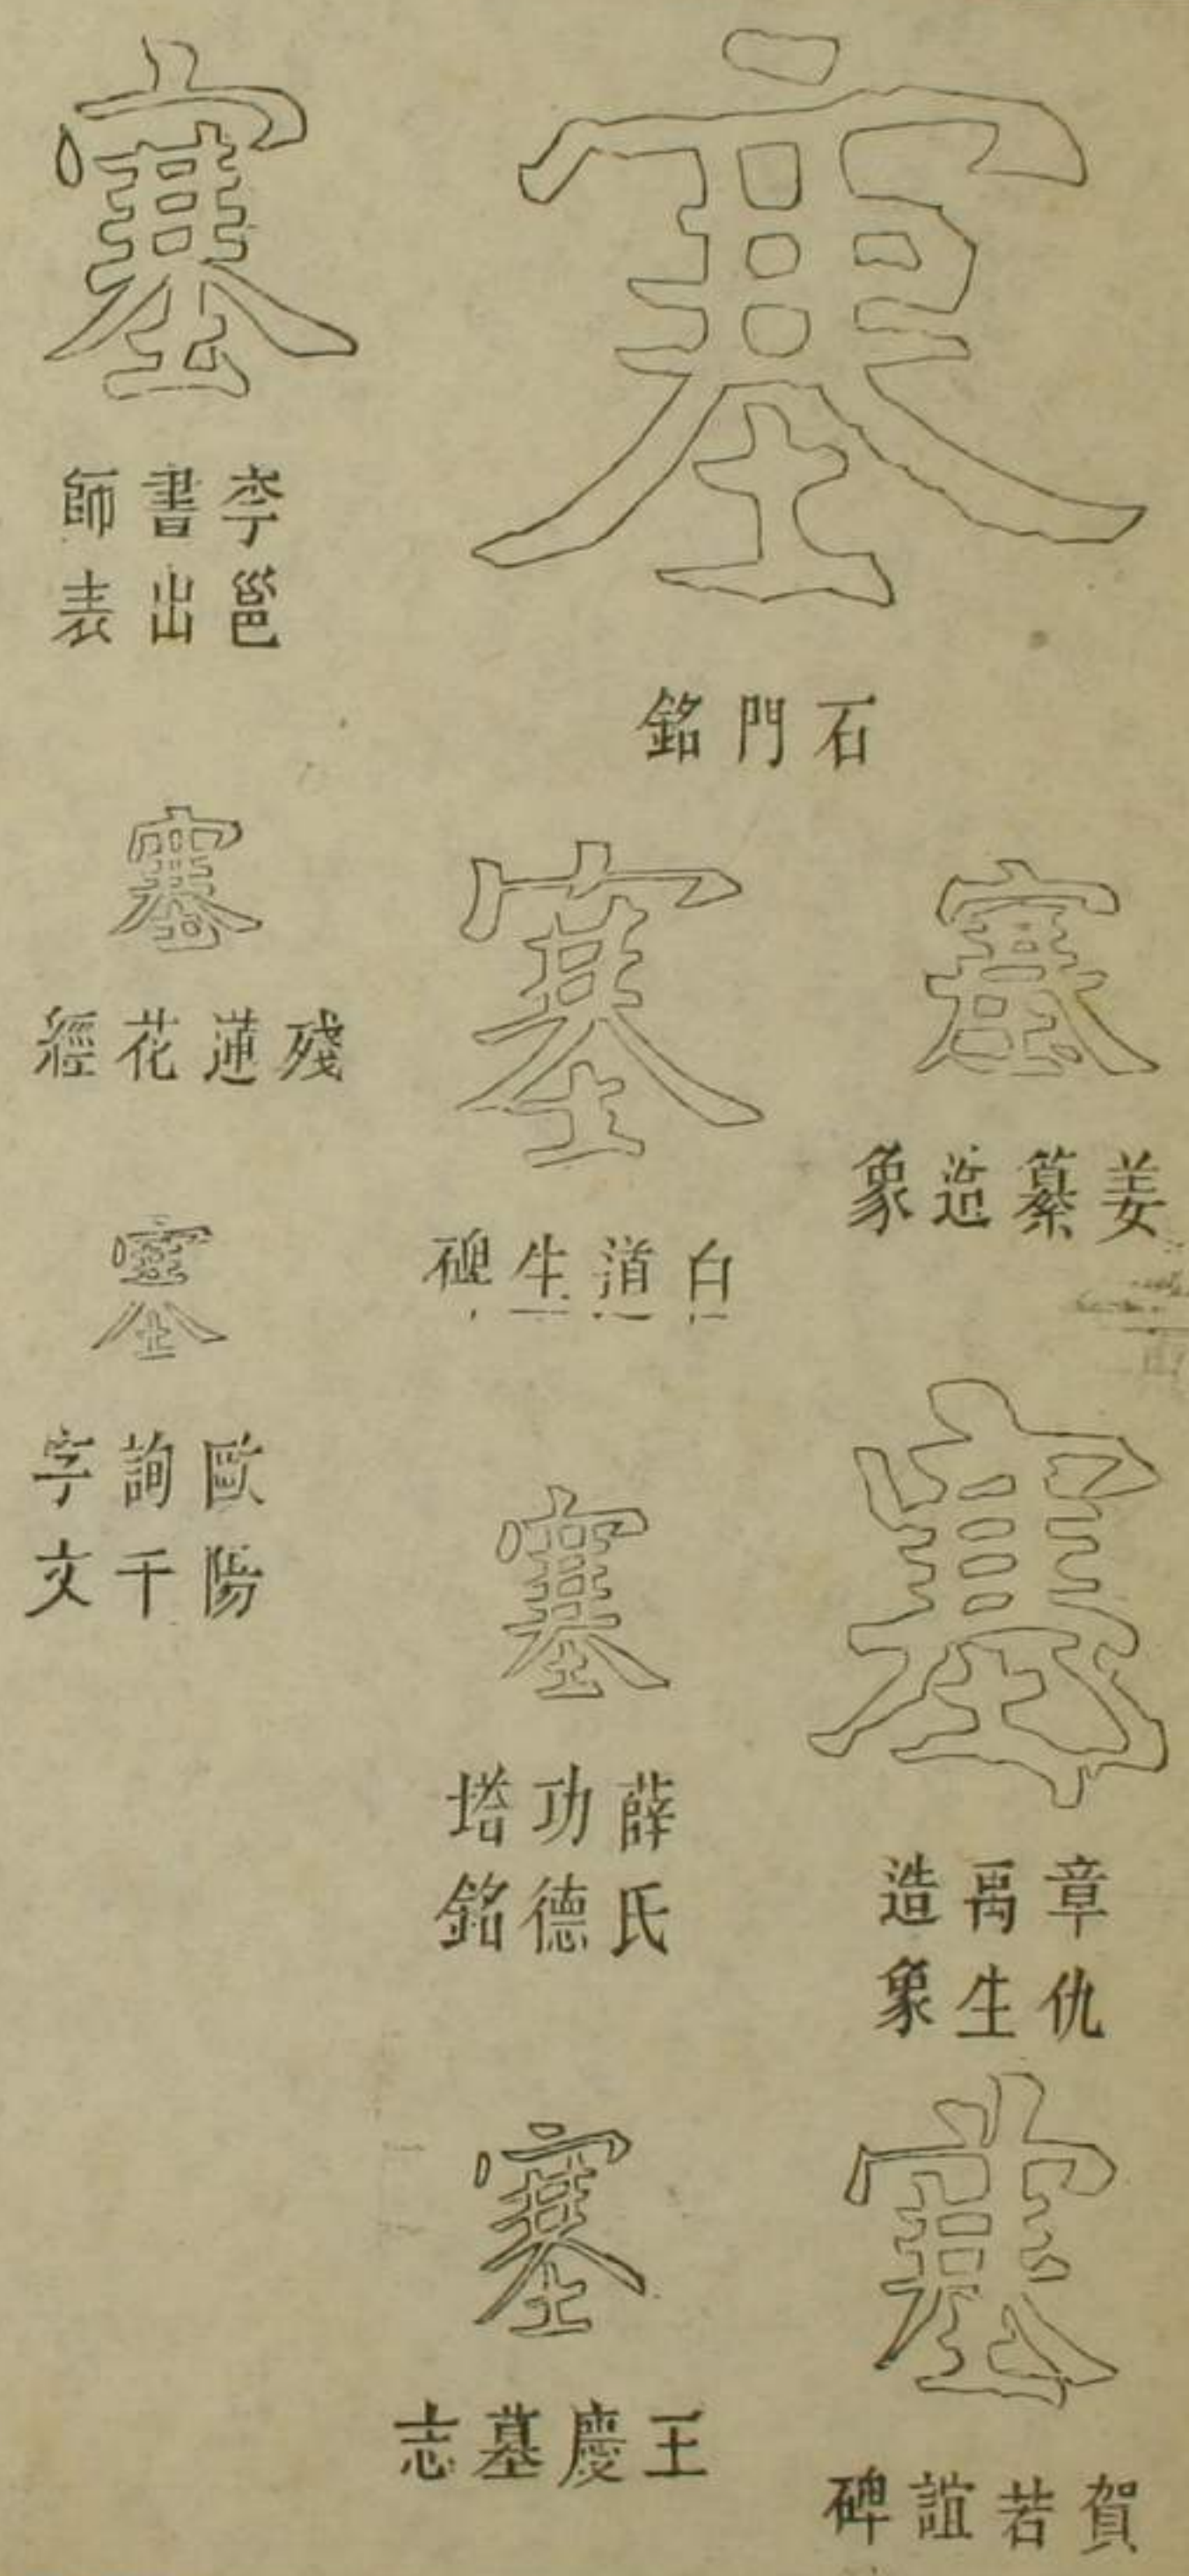 塞
石門銘
塞
姜纂造象
塞
章仇禹生造象
塞
賀若誼碑
塞
白道生碑
塞
薛氏功德塔銘
塞
王慶墓志
塞
李邕書出師表
塞
殘蓮花經
塞
歐陽詢千字文